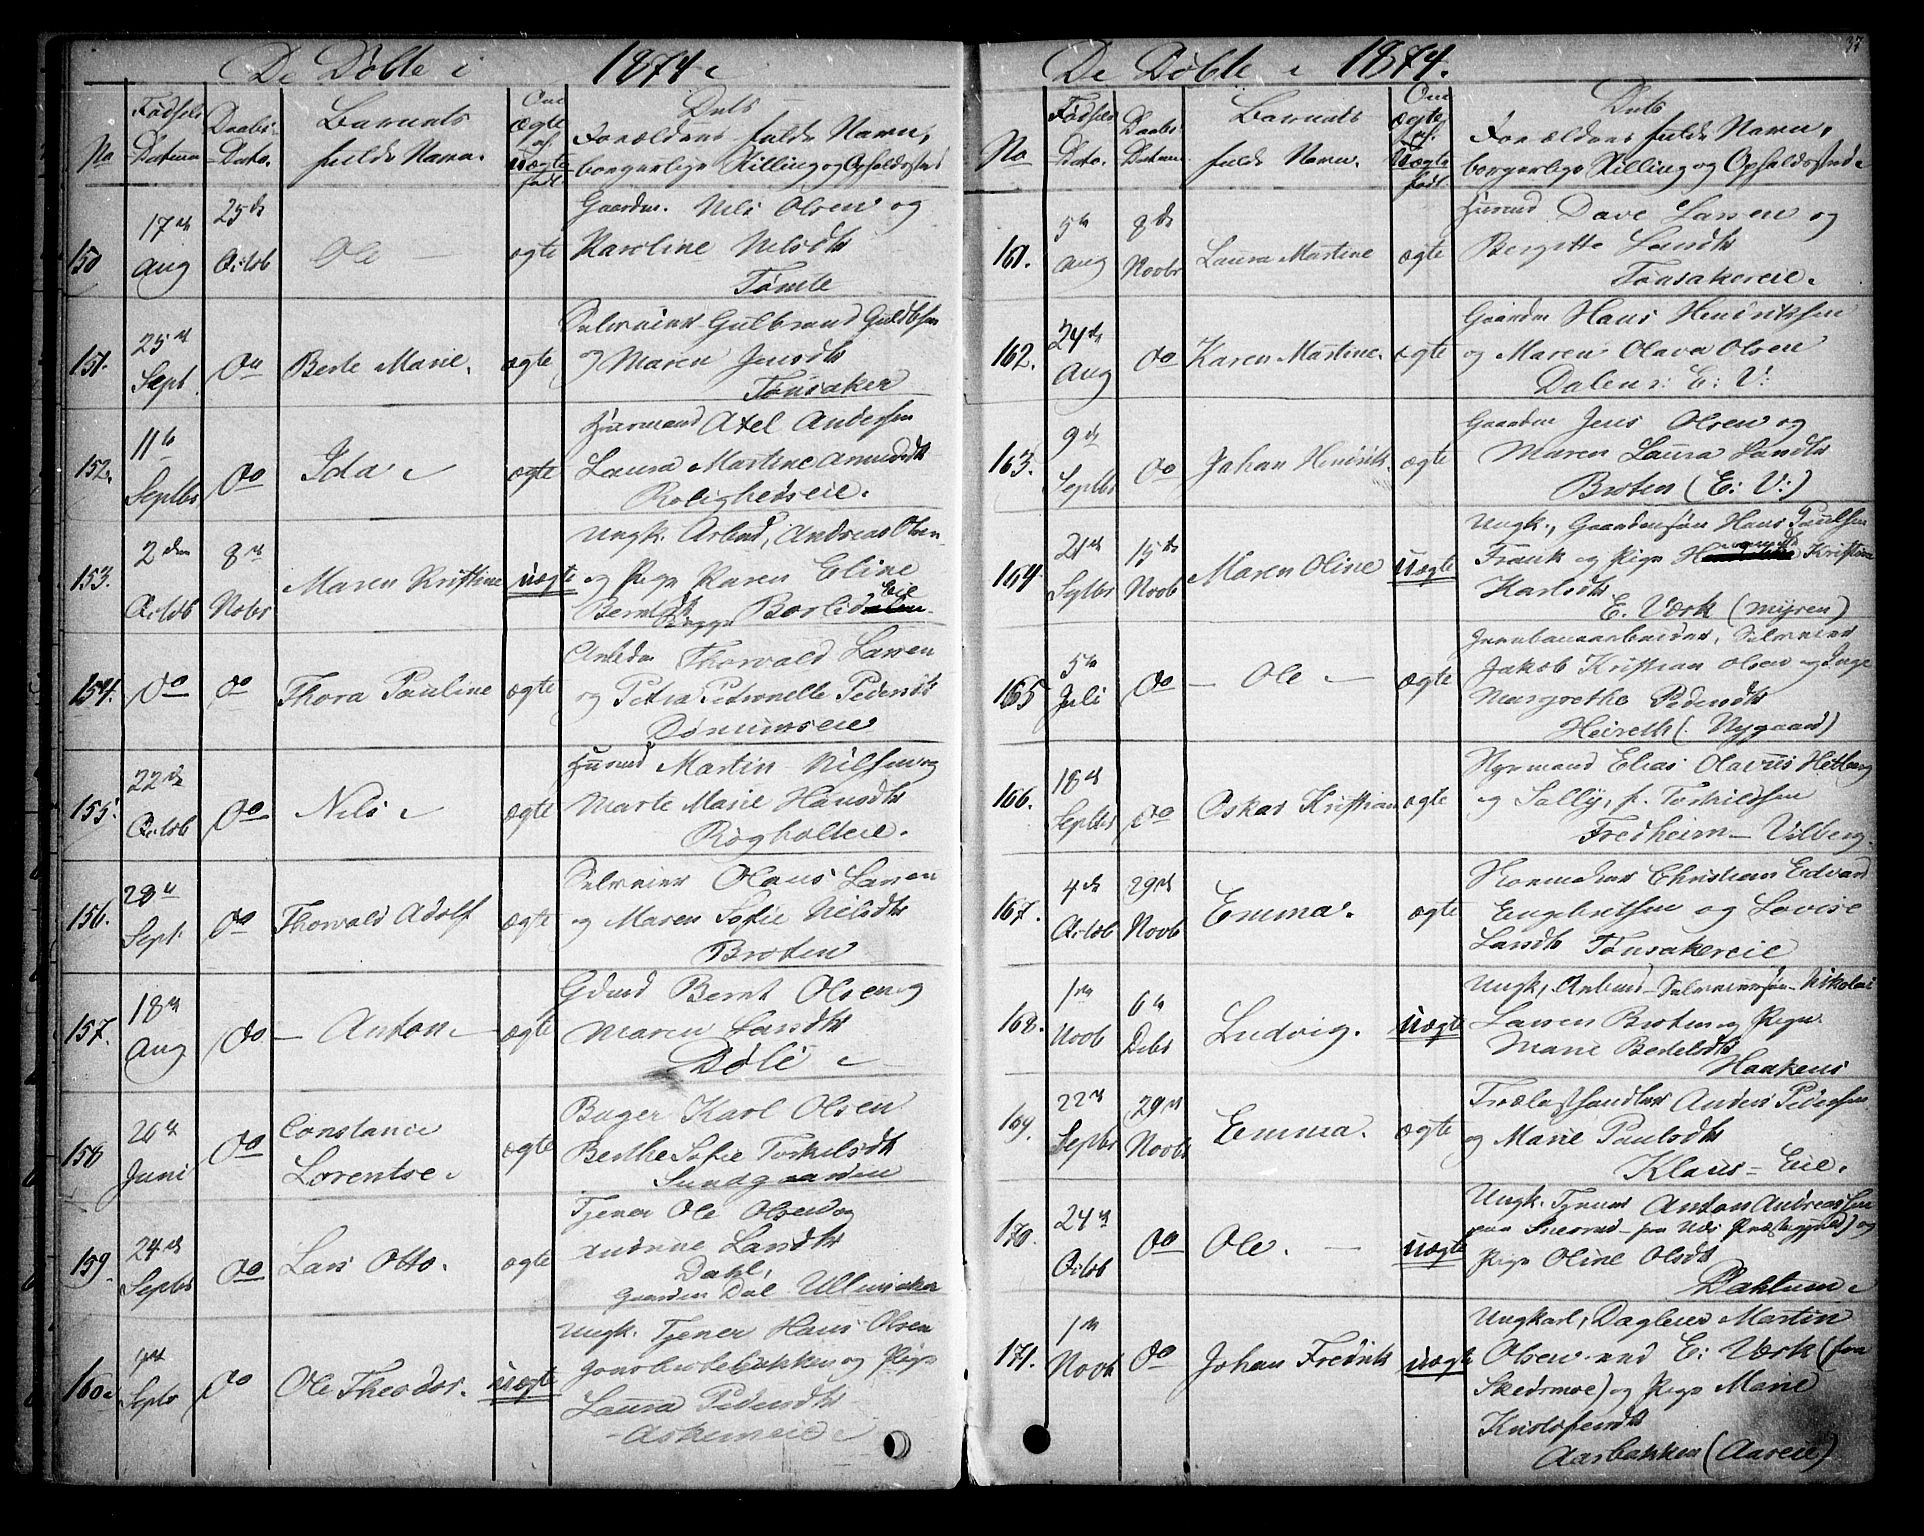 De Døbte i 1874.
No
Fødsels
Datum
Daabs-
Dato.
Barnets
fulde Navn.
Om
ægte
el.
uægte
født.
Dets
Forældres fulde Navn,
borgerlige Stilling og Opholdssted
150
17de
Aug
25de
Octob
Ole
ægte
Gaardm. Nils Olsen og
Karoline Nilsdtr
Tømte
151.
25de
Sept.
Do
Berte Marie.
ægte
Selveier Gulbrand Guldbsen
og Maren Jensdtr
Tønsaker
152.
11te
Septbr
Do
Ida
ægte
Huusmand Axel Andersen
Laura Martine Amundsdtr
Rolighedseie.
153.
2den
Octob
8de
Novbr
Maren Kristine
uægte
Ungk. Arbmd, Andreas Olsen
og Pige Karen Eline
Berntsdtr Borlid
Eie
154.
Do
Do
Thora Pauline
ægte
Arbdm Thorvald Larsen
og Petra Petronelle Pedersdtr
Dønumseie
155.
22de
Octob
Do
Nils
ægte
Huusmd Martin Nilsen og
Marte Marie Hansdtr
Rogholteie.
156.
28de
Sept.
Do
Thorvald Adolf
ægte
Selveier Olaus Larsen
og Maren Sofie Nilsdtr
Broten
157.
18de
Aug
Do
Anton
ægte
Gdmd Bernt Olsen og
Maren Larsdtr
Døli
158
26de
Juni
Do
Constance
Lorentse
ægte
Bager Karl Olsen
Berthe Sofie Torkilsdtr
Sundgaarden
159.
24de
Septbr
Do
Lars Otto.
ægte
Tjener Ole Olsen og
Andrine Larsdtr
Dahl,
Gaarden Dal Ullensaker
160
1ste
Septb
Do
Ole Theodor.
uægte
Ungk. Tjener Hans Olsen
og Pige
Laura Pedersdtr
Askerneie
37
De Døbte i 1874.
No
Fødsels
Dato.
Daabs
Datum
Barnets
fulde Navn.
Om
ægte
el.
uægte
født.
Dets
Forældres fulde Navn,
borgerlige Stilling og Opholdssted
161.
5te
Aug
8de
Novbr
Laura Martine
ægte
Huusmd Dave Larsen og
Bergitte Larsdtr
Tønsakereie.
162.
24de
Aug
Do
Karen Martine.
ægte
Gaardm Hans Hendriksen
og Maren Olava Olsen
Dalen: E: V:
163.
9de
Septbr
Do
Johan Hendrik.
ægte
Gaardm Jens Olsen og
Maren Laura Larsdtr
Broten (E: V:)
164.
21de
Septbr
15de
Novb
Maren Oline
uægte
Ungk., Gaardmsøn Hans Paulsen
Frank og Pige Kristine
Karlsdtr
E. Værk (Myren)
165
5te
Juli
Do
Ole
ægte
Jernbanearbeider, Selveier
Jakob Kristian Olsen og Inge
Margrethe Pedersdtr
Heireth (: Nygaard)
166.
18de
Septbr
Do
Oskar Kristian
ægte
Styrmand Elias Olavus Hetberg
og Sally, f. Torkildsen
Fredheim - Vilberg.
167.
4de
Octob
29de
Novb
Emma.
ægte
Skomaker Christian Edvard
Engebretsen og Lovise
Larsdtr Tønsakereie
168.
1ste
Novb
6te
Debr
Ludvig.
uægte
Ungk, Arbmd - Selveiersøn - Nikolai
Larsen Broten og Pige
Marie Bertelsdtr
Haakens
169.
22de
Septbr
29de
Novbr
Emma.
ægte
Trælasthandler Anders Pedersen
og Marie Paulsdtr
Klaus - Eie.
170.
24de
Octob
Do
Ole.
uægte
Ungk. Tjener Anton Andreassen
paa fra Næs Præstegjeld) og
Pige Oline Olsdtr
Dahlum
171.
1ste
Novb
Do
Johan Fredrik
uægte
Ungkarl, Dagleier Martin
Olsen ved E: Værk (fra
Skedsmoe) og Pige Marie
Kristofersdtr
Aasbakken (Aaseie)